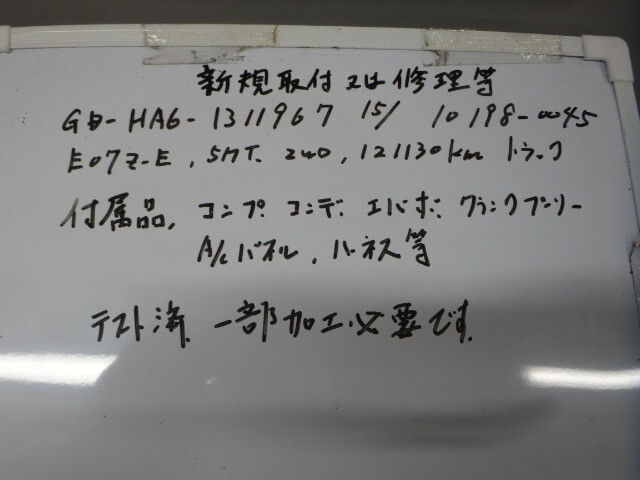 新規取付又は修理等
GD-HA6-1311967 15/ 10198-0045
E07Z-E, 5MT. 2WD, 121130km トラック
付属品, コンプ. コンデ. エバポ. クランクプーリー
A/Cパネル, ハーネス等
テスト済. 一部加工必要です.